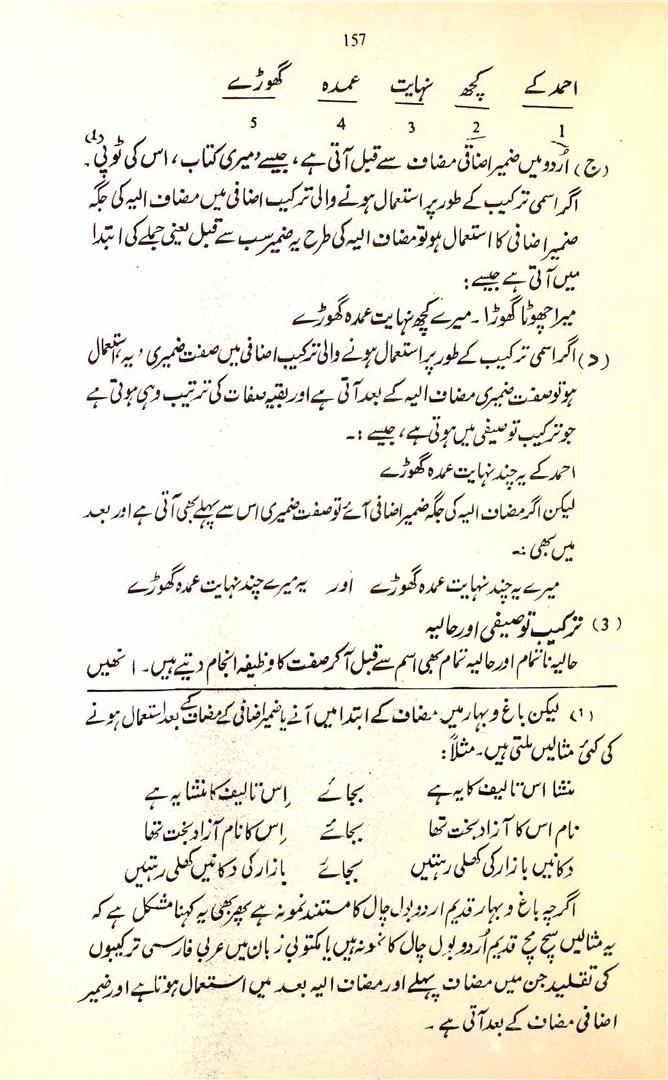 157
احمد کے کچھ نہایت عمدہ گھوڑے
1 2 3 4 5
(ج) اُردو میں ضمیر اضافی مضاف سے قبل آتی ہے، جیسے 'میری کتاب، اس کی ٹوپی۔(1)
اگر اسمی ترکیب کے طور پر استعمال ہونے والی ترکیب اضافی میں مضاف الیہ کی جگہ
ضمیر اضافی کا استعمال ہو تو مضاف الیہ کی طرح یہ ضمیر سب سے قبل یعنی جملے کی ابتدا
میں آتی ہے جیسے:
میرا چھوٹا گھوڑا۔ میرے کچھ نہایت عمدہ گھوڑے
(د) اگر اسمی ترکیب کے طور پر استعمال ہونے والی ترکیب اضافی میں صفت ضمیری 'یہ' استعمال
ہو تو صفت ضمیری مضاف الیہ کے بعد آتی ہے اور بقیہ صفات کی ترتیب وہی ہوتی ہے
جو ترکیب توصیفی میں ہوتی ہے، جیسے :۔
احمد کے یہ چند نہایت عمدہ گھوڑے
لیکن اگر مضاف الیہ کی جگہ ضمیر اضافی آئے تو صفت ضمیری اس سے پہلے بھی آتی ہے اور بعد
میں بھی :۔
میرے یہ چند نہایت عمدہ گھوڑے اور یہ میرے چند نہایت عمدہ گھوڑے
(3) ترکیب توصیفی اور حالیہ
حالیہ ناتمام اور حالیہ تمام بھی اسم سے قبل آ کر صفت کا وظیفہ انجام دیتے ہیں۔ انھیں
(1) لیکن باغ و بہار میں مضاف کے ابتدا میں آنے یا ضمیر اضافی کے مضاف کے بعد استعمال ہونے
کی کئی مثالیں ملتی ہیں۔ مثلاً:
منشا اس تالیف کا یہ ہے بجائے اِس تالیف کا منشا یہ ہے
نام اس کا آزاد بخت تھا بجائے اِس کا نام آزاد بخت تھا
دکانیں بازار کی کھلی رہتیں بجائے بازار کی دکانیں کھلی رہتیں
اگرچہ باغ و بہار قدیم اردو بول چال کا مستند نمونہ ہے پھر بھی یہ کہنا مشکل ہے کہ
یہ مثالیں سچ مچ قدیم اُردو بول چال کا نمونہ ہیں یا مکتوبی زبان میں عربی فارسی ترکیبوں
کی تقلید جن میں مضاف پہلے اور مضاف الیہ بعد میں استعمال ہوتا ہے اور ضمیر
اضافی مضاف کے بعد آتی ہے۔